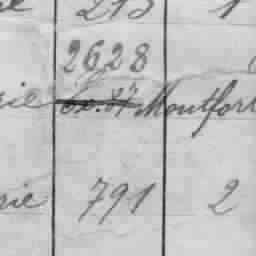 213 1
2628
rie Montfort
rie 791 2